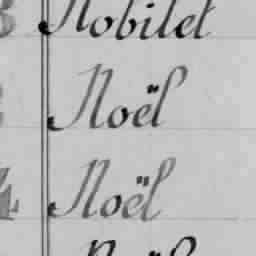 Nobilet
Noël
4 Noël